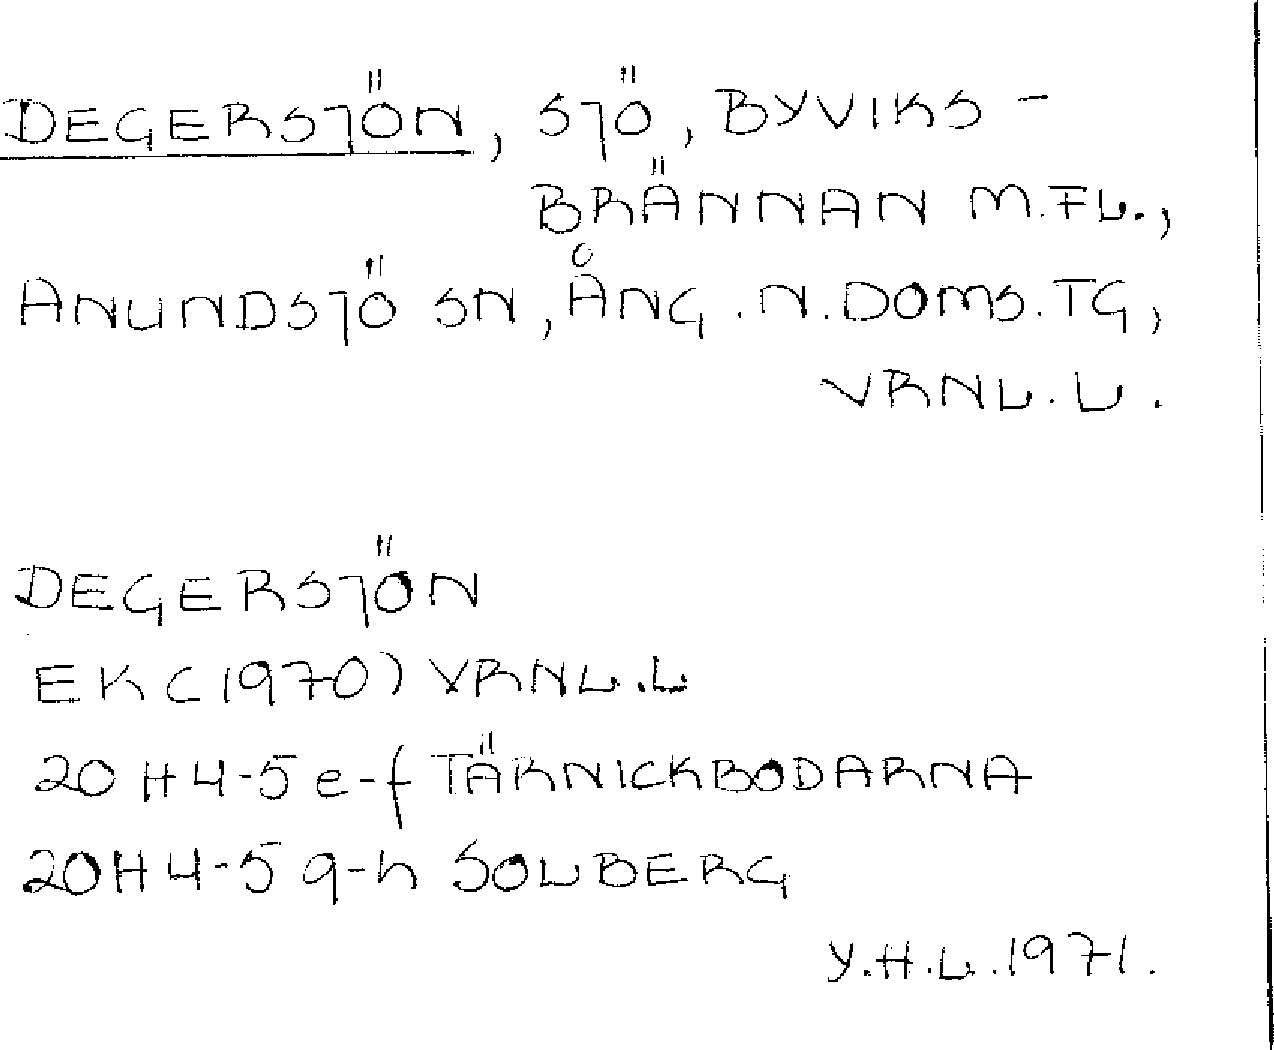 DEGERSJÖN, SJÖ, BYVIKS-
BRÄNNAN M.FL.,
ANUNDSJÖ SN, ÅNG. N. DOMS. TG,
VRNL. L.
DEGERSJÖN
EK (1970) VRNL. L
20 H 4-5 e-f TÄRNICKBODARNA
20H 4-5 g-h SOLBERG
Y.H.L. 1971.